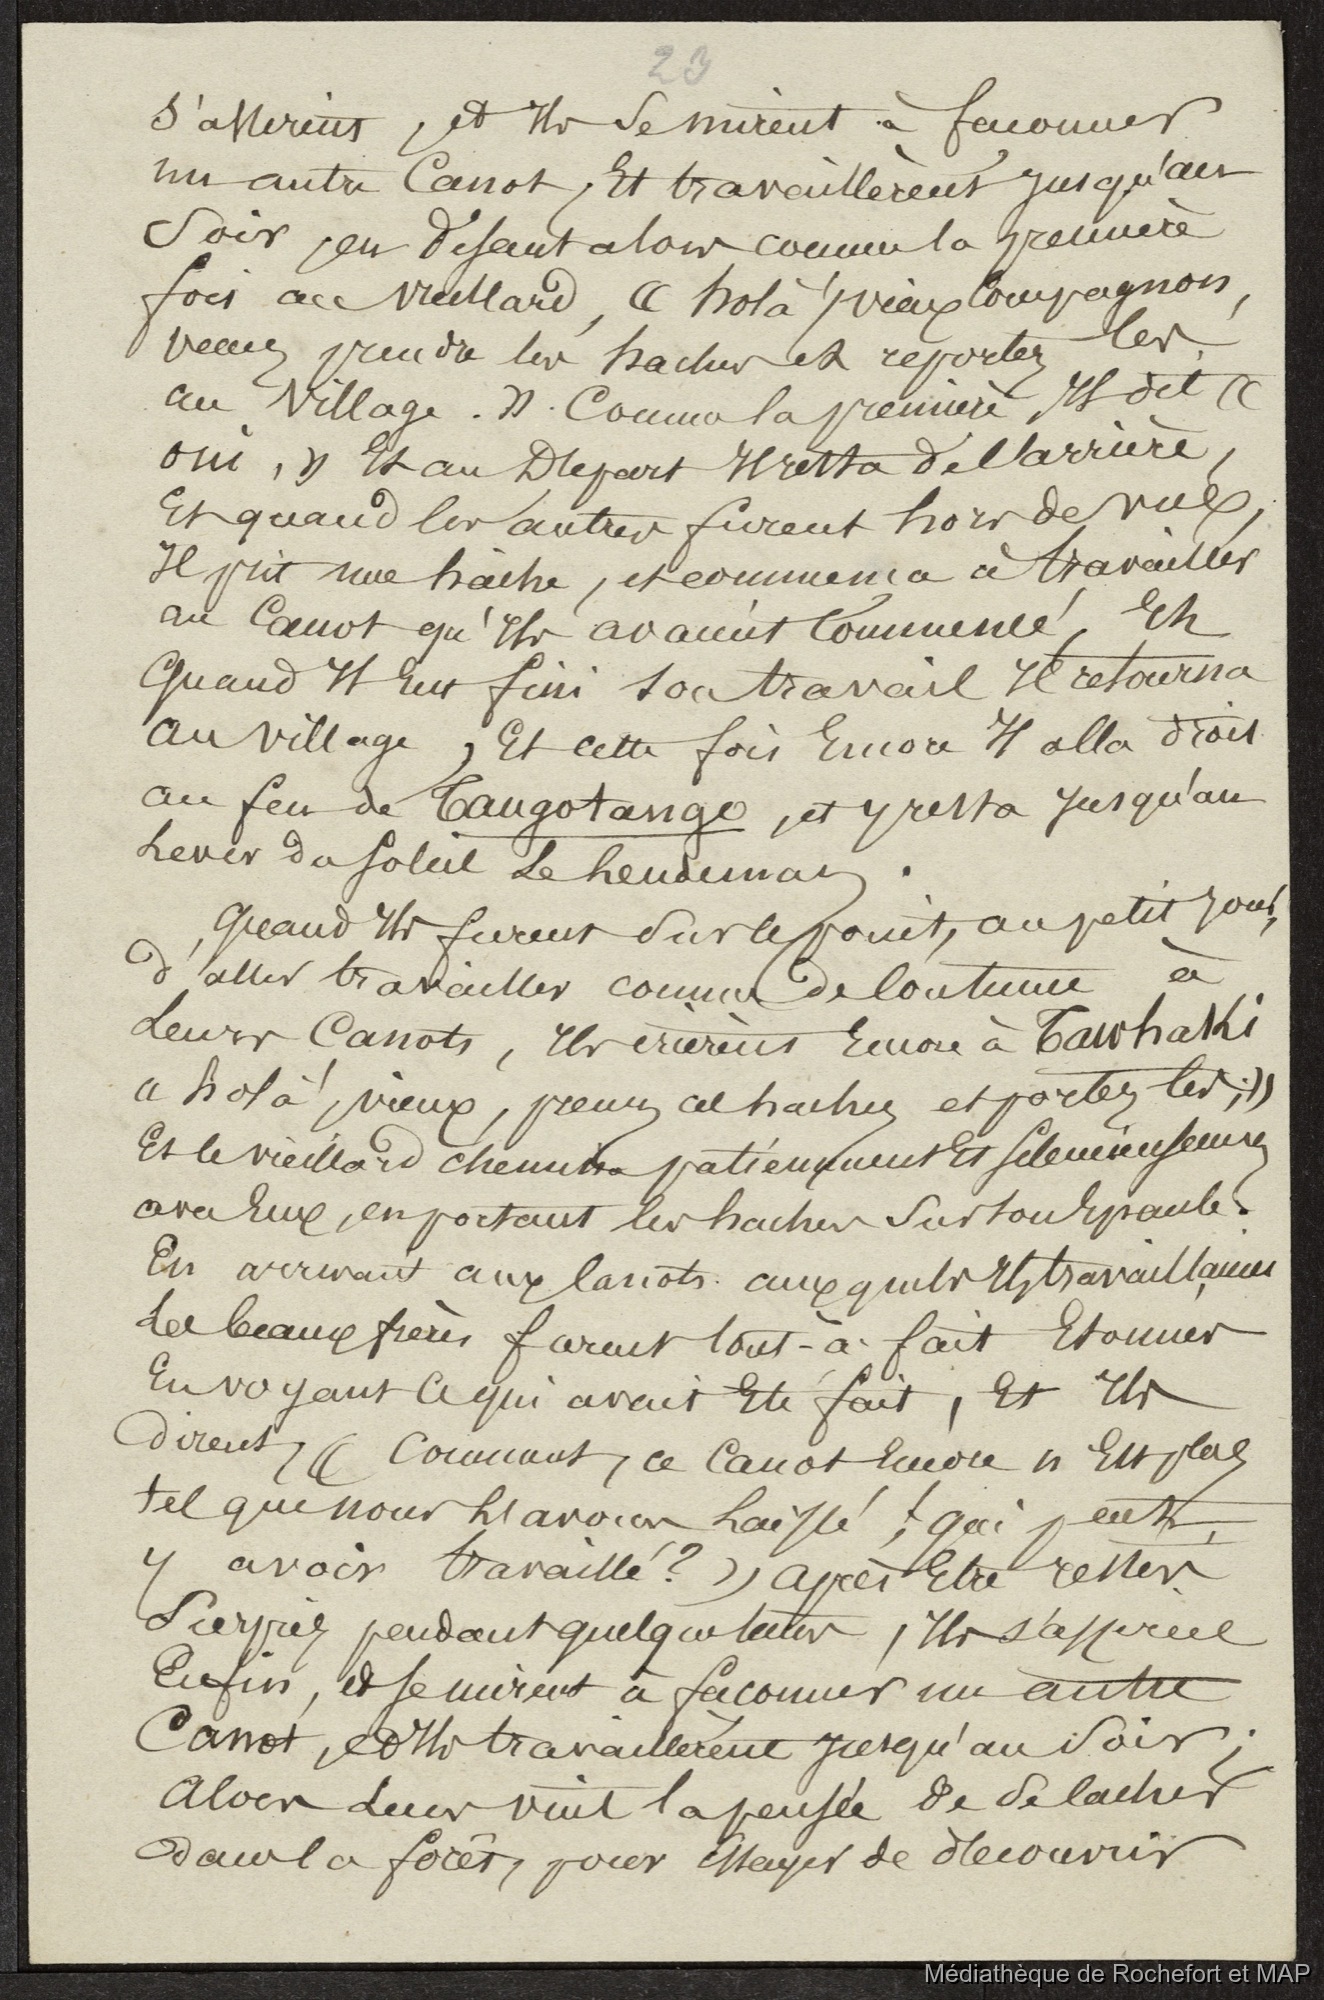 23
s'assirent, et Ils se mirent à façonner
un autre Canot, Et travaillèrent jusqu'au
Soir, en disant alors comme la première
fois au vieillard, « holà ! vieux Compagnon,
venez prendre les haches et reportez les
au Village. » Comme la première, Il dit «
oui, » Et au Départ Il resta de l'arrière,
Et quand les autres furent hors de vue,
Il prit une hâche, et commença à travailler
au Canot qu'Ils avaient Commencé, Et
Quand Il eut fini son travail Il retourna
au village, Et cette fois Encore Il alla droit
au feu de Tangotango, et y resta jusqu'au
Lever du soleil Le Lendemain.
Quand Ils furent sur le point, au petit jour,
d'aller travailler comme de Coutume à
Leurs Canots, Ils crièrent Encore à Tawhaki
« holà ! vieux, prenez ces haches et portez les ; »
Et le vieillard chemina patiemment Et silencieusement
avec Eux, en portant les haches sur son Epaule.
En arrivant aux Canots auxquels Ils travaillaient
Les beaux frères furent tout-à-fait Etonnés
En voyant Ce qui avait Eté fait, Et Ils
dirent, « Comment, ce Canot Encore n'Est pas
tel que nous l'avons Laissé ! ; qui peut
y avoir travaillé ? » après Etre restés
Surpris pendant quelque temps, Ils
Enfin, et se mirent à façonner un autre
Canot, et Ils travaillèrent jusqu'au Soir ;
Alors Leur vint la pensée de se cacher
dans la forêt, pour Essayer de découvrir
Médiathèque de Rochefort et MAP